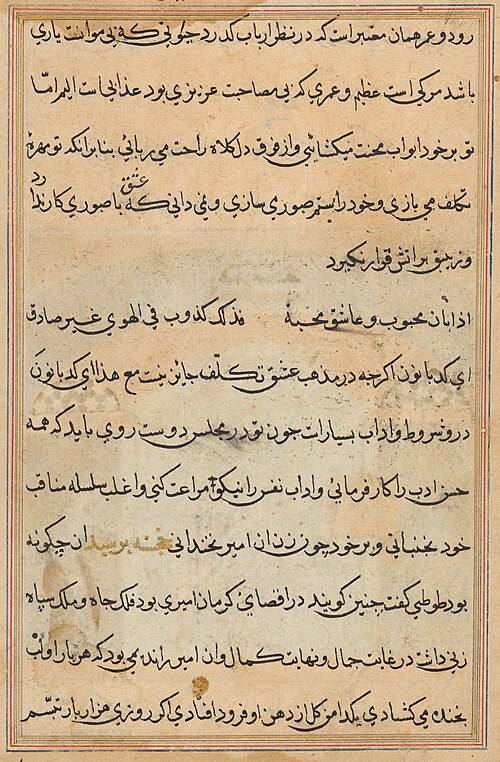 رود و عمر همان معتبر است که در نظر ارباب کدرد چو بی که بی موانست یاری
باشد مرکی است عظیم و عمری که بی مصاحبت عزیزی بود عذابی است الیم اما
تو بر خود ابواب محنت میکشائی و از فرق دل کلاه راحت می ربائی بنابرانکه تو مهره
تکلف می بازی و خود را ستم صبوری سازی و نمی دانی که عشق با صبوری کار ندارد
و زیبق بر اتش قرار نکیرد
اذا بان محبوب و عاش محبه فذلک کذوب فی الهوی غیر صادق
ای کدبانون اکرچه در مذهب عشق تکلف جایز نیست مع هذا ای کدبانون
درو شروط و اداب بسیار است چون تو در مجلس دوست روی باید که همه
حسن ادب را کار فرمائی و اداب نفس را نیکو مراعت کنی و اغلب سلسله مناقب
خود بجنبانی و بر خود چون زن ان امیر نخندانی خجسته پرسید ان چکونه
بود طوطی کفت چنین کویند در اقصای کرمان امیری بود فلک جاه و ملک سپاه
زنی داشت در غایت جمال و نهایت کمال وان امیر را ندیمی بود که هر بار او لب
بخنده می کشادی یکدامن کل از دهن او فرود افتادی اکر روزی هزار بار تبسم